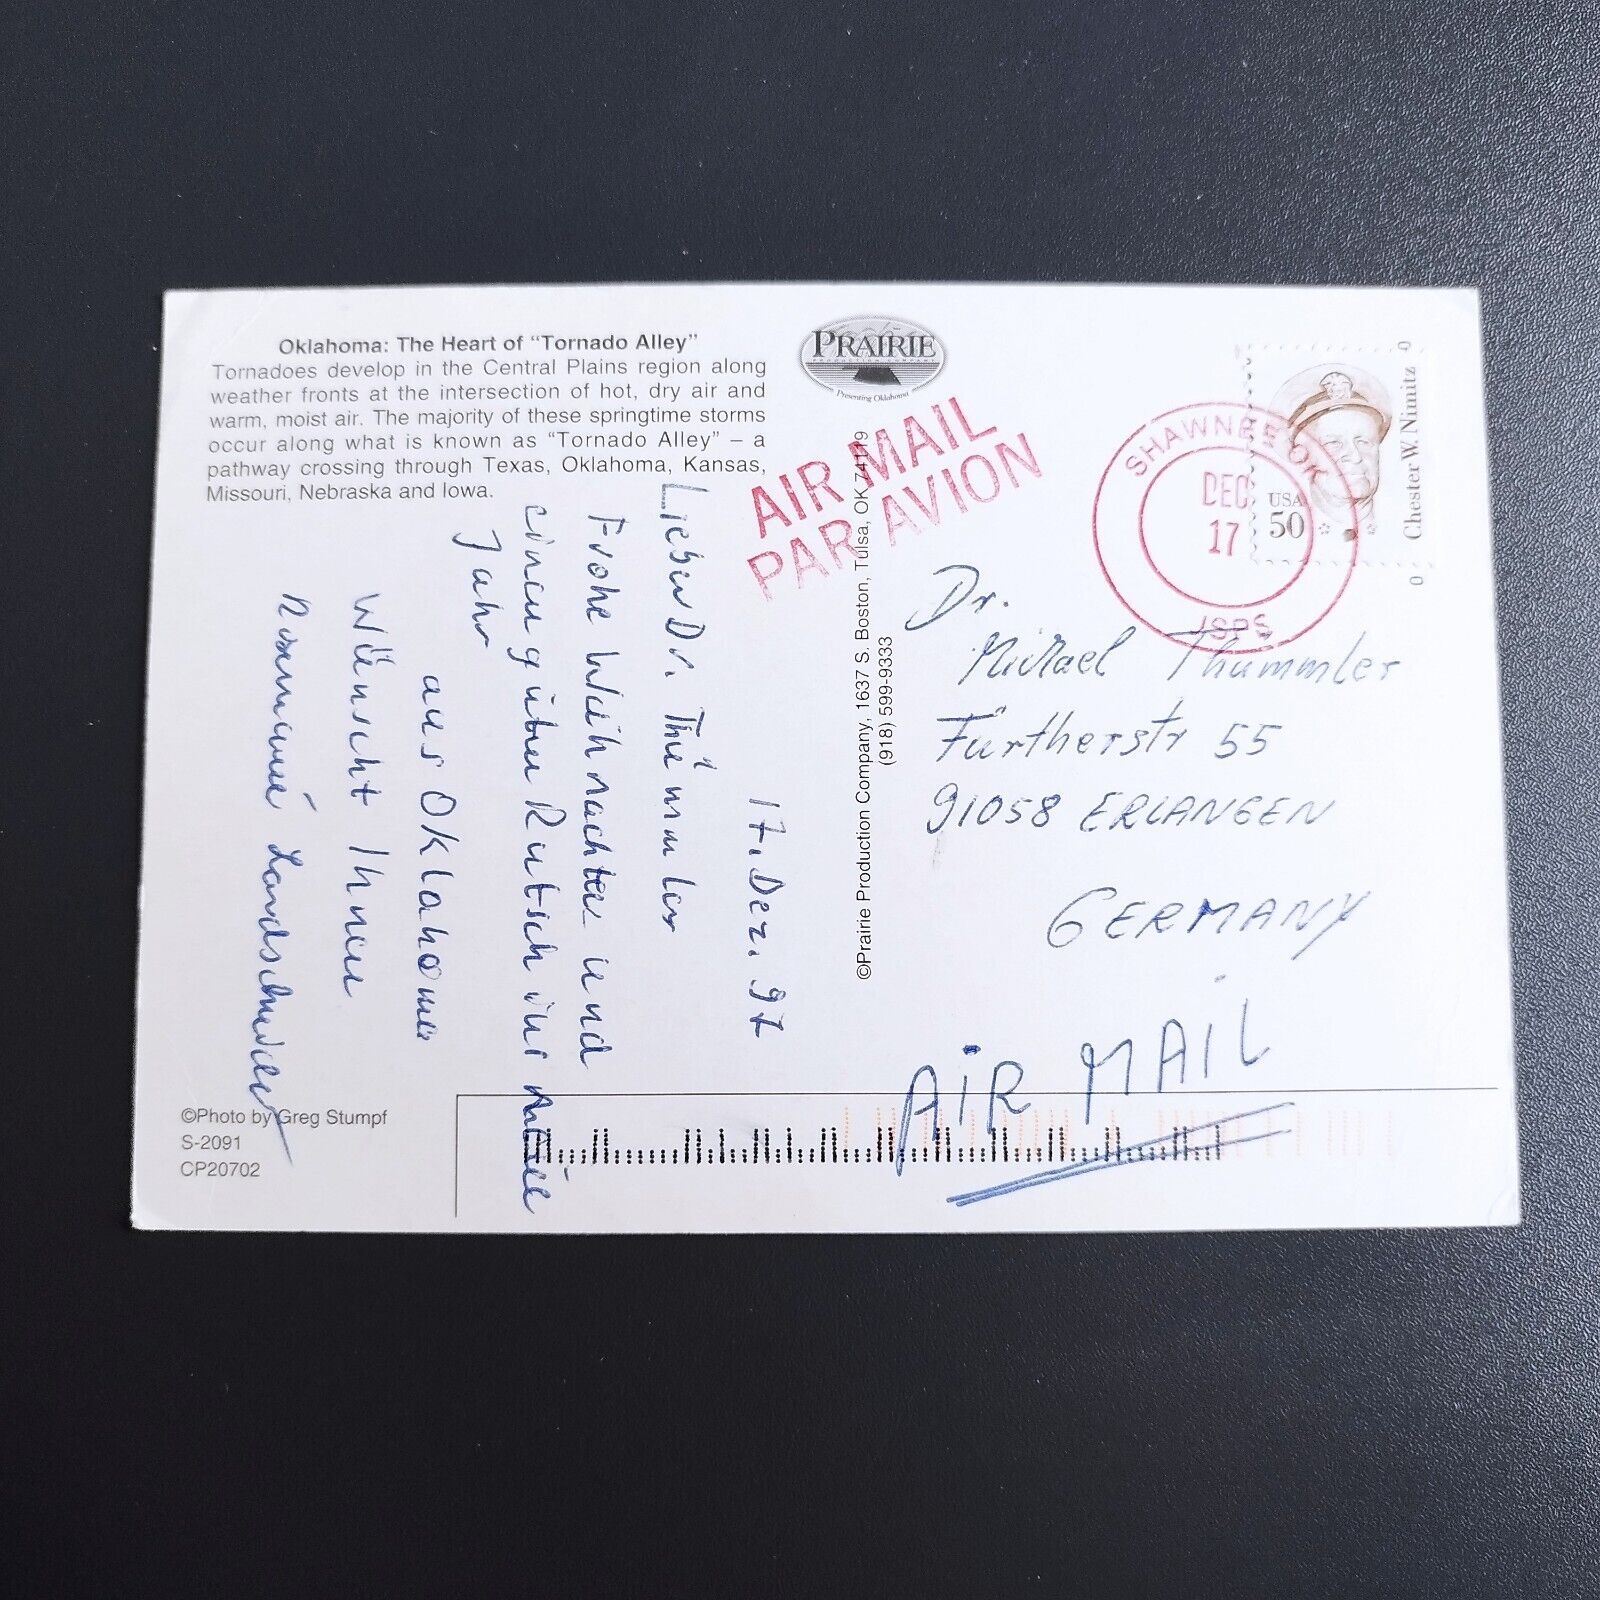 Oklahoma: The Heart of “Tornado Alley”
Tornadoes develop in the Central Plains region along
weather fronts at the intersection of hot, dry air and
warm, moist air. The majority of these springtime storms
occur along what is known as “Tornado Alley” – a
pathway crossing through Texas, Oklahoma, Kansas,
Missouri, Nebraska and Iowa.
17. Dez. 97
Lieber Dr. Thümmler
Frohe Weihnachten und
einen guten Rutsch ins neue
Jahr
aus Oklahoma
wünscht Ihnen
Rosemarie
©Photo by Greg Stumpf
S-2091
CP20702
PRAIRIE
PRODUCTION COMPANY
Presenting Oklahoma
©Prairie Production Company, 1637 S. Boston, Tulsa, OK 74119
(918) 599-9333
AIR MAIL
PAR AVION
SHAWNEE OK
DEC
17
USPS
USA
50
Chester W. Nimitz
Dr.
Michael Thümmler
Fürtherstr 55
91058 ERLANGEN
GERMANY
AIR MAIL